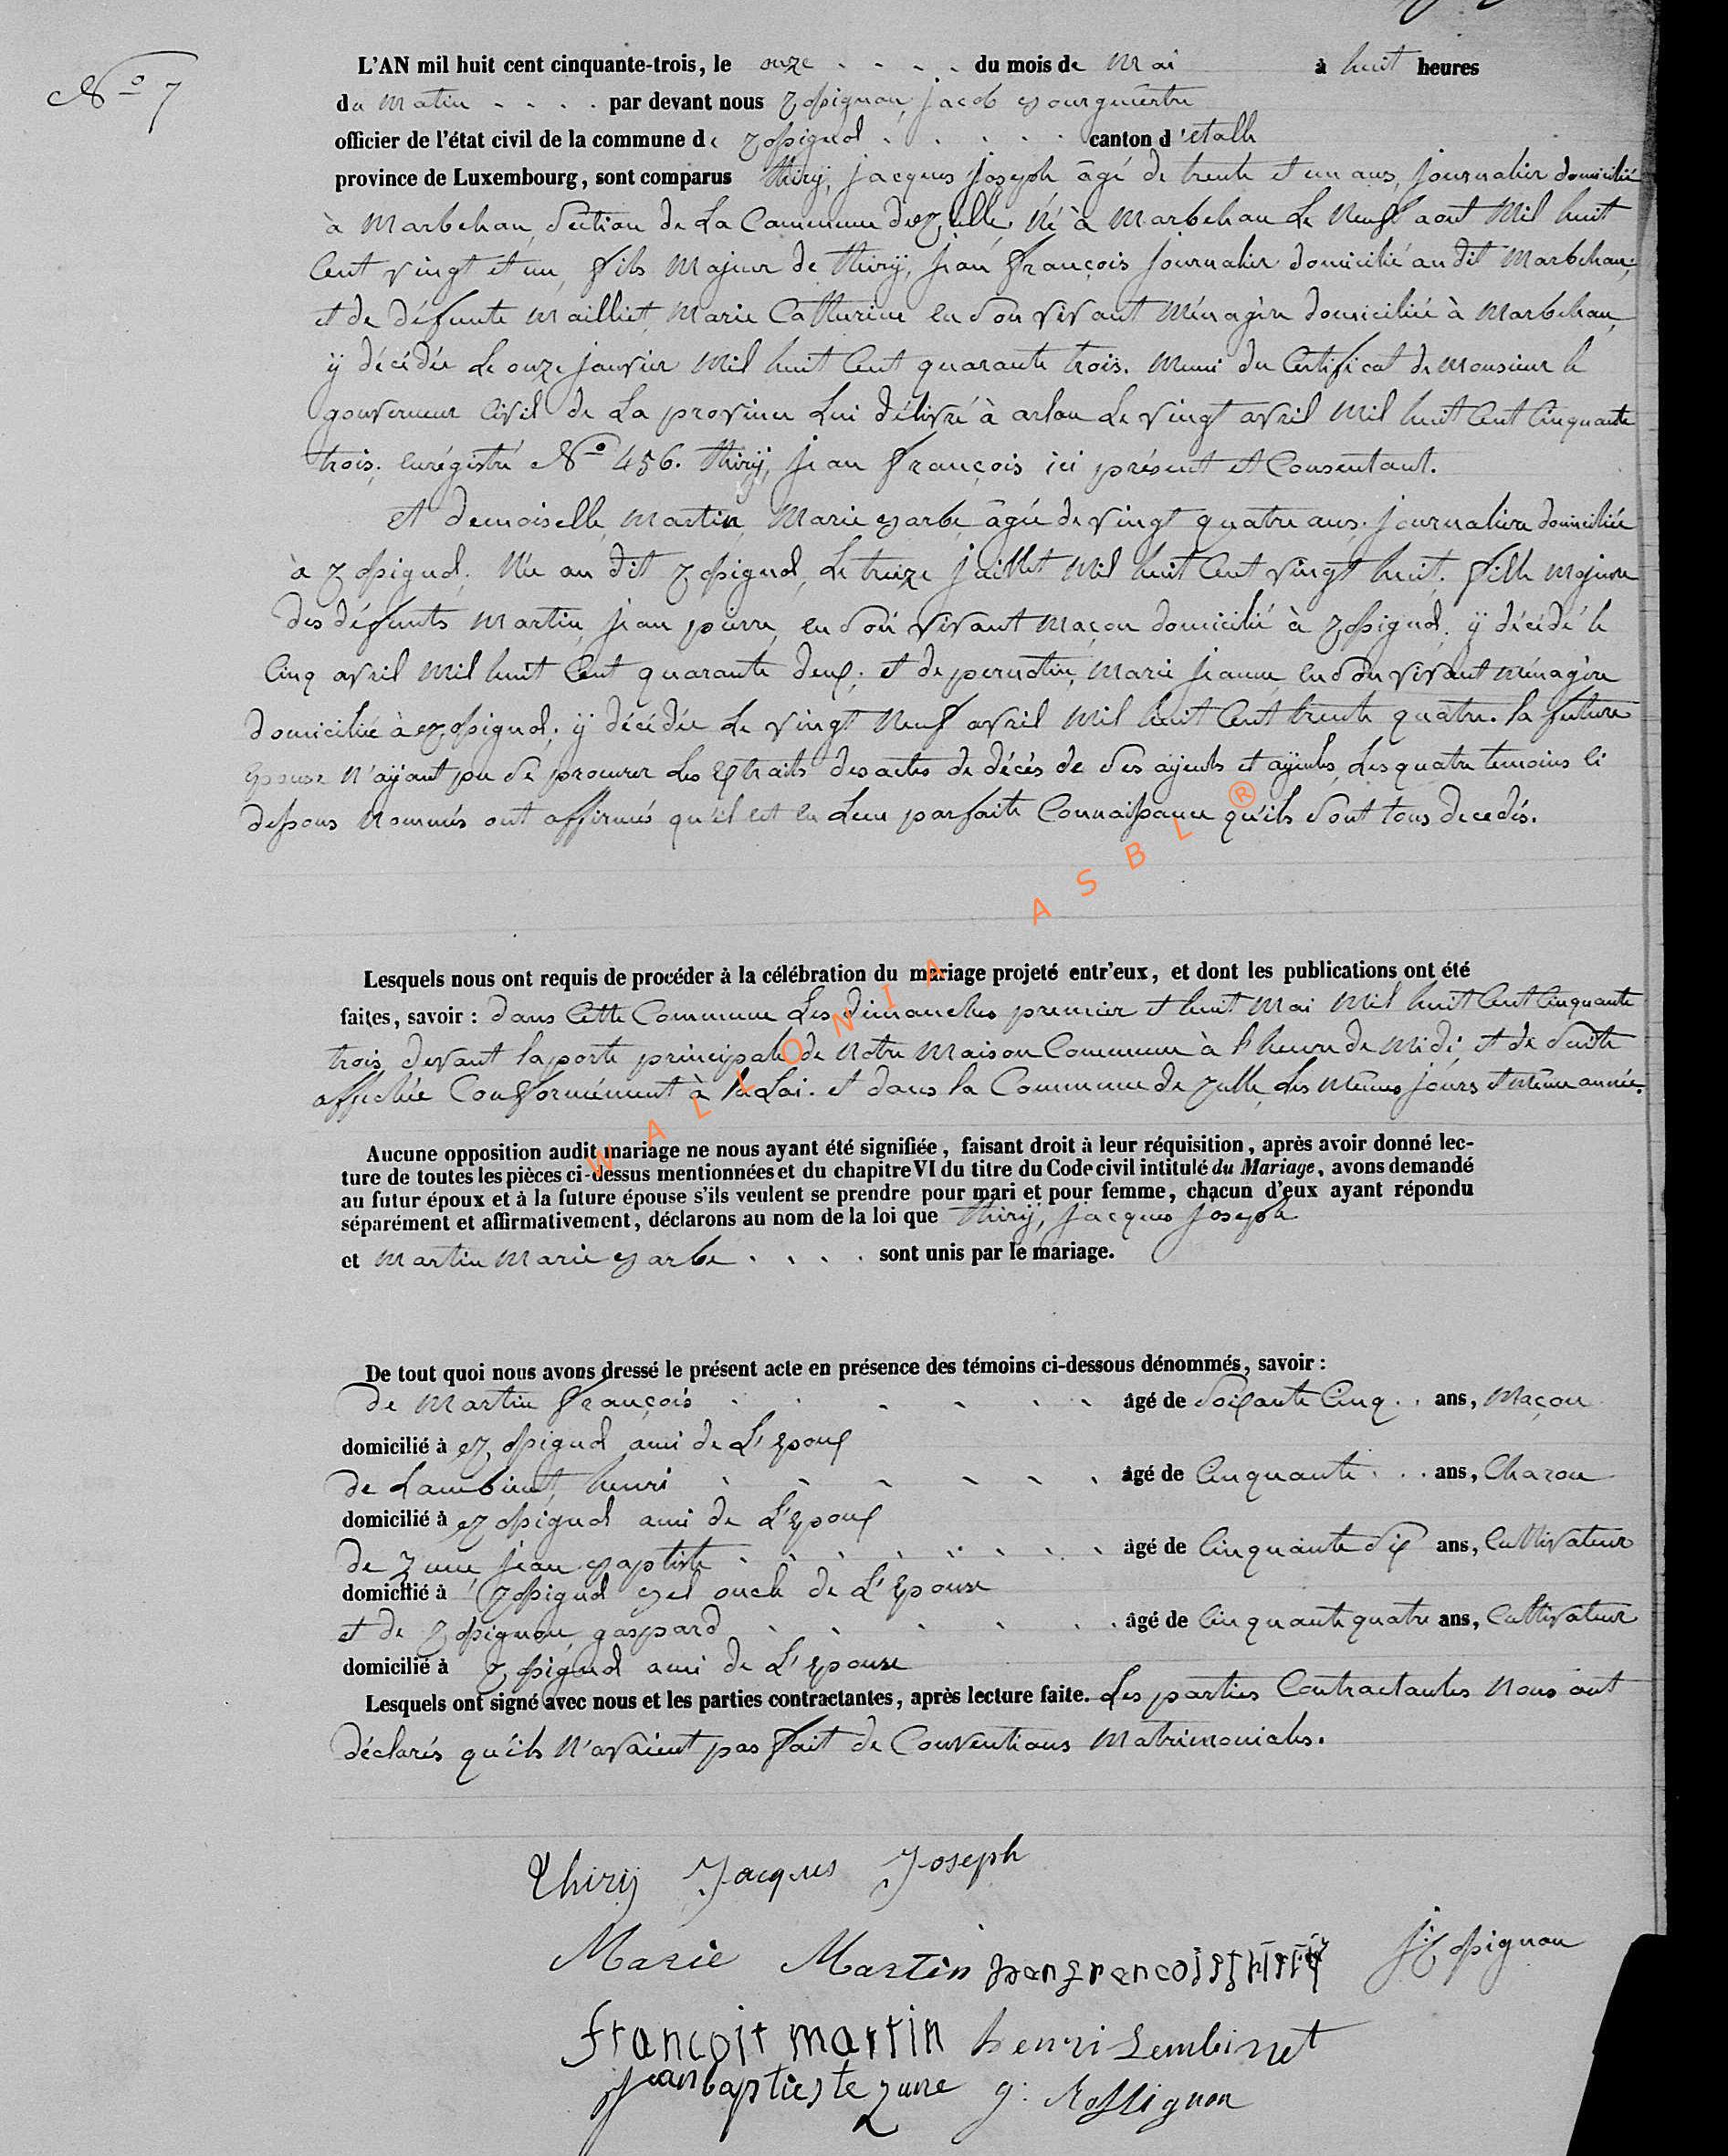 N° 7
L'AN mil huit cent cinquante-trois, le onze . . . . du mois de Mai à huit heures
du Matin . . . . par devant nous Rossignon, Jacob Bourguemestre
officier de l'état civil de la commune de Rossignol . . . . . canton d'Etalle
province de Luxembourg, sont comparus Thirÿ, Jacques Joseph âgé de trente et un ans, Journalier domicilié
à Marbehan, Section de La Commune de Rulle, Né à Marbehan Le Neuf aout Mil huit
Cent vingt et un, fils Majeur de Thirÿ, Jean François Journalier domicilié au dit Marbehan;
et de défunte Mailliet, Marie Catherine en Son vivant Ménagère domiciliée à Marbehan,
ÿ décédée Le onze Janvier Mil huit Cent quarante trois. Muni du Certificat de Monsieur le
gouverneur Civil de La province Lui délivré à arlon Le vingt avril Mil huit Cent Cinquante
trois, enrégistré N° 456. Thirÿ, Jean François ici présent et Consentant.
Et demoiselle, Martin, Marie Barbe, âgée de vingt quatre ans, Journalière domiciliée
à Rossignol, Née au dit Rossignol, Le treize Juillet Mil huit Cent vingt huit, fille Majeure
des défunts Martin, Jean pierre, en Son vivant Maçon domicilié à Rossignol, ÿ décédé le
Cinq avril Mil huit Cent quarante deux; et de pernotin, Marie Jeanne, en Son vivant Ménagère
domiciliée à Rossignol; ÿ décédée Le vingt Neuf avril Mil huit Cent trente quatre. la future
Epouse N'aÿant pu Se procurer Les Extraits des actes de décès de Ses aÿeuls et aÿeules, Les quatre temoins Ci
dessous Nommés ont affirmés qu'il est en Leur parfaite Connaissance qu'ils Sont tous decedés.
Lesquels nous ont requis de procéder à la célébration du mariage projeté entr'eux, et dont les publications ont été
faites, savoir : dans Cette Commune Les dimanches premier et huit Mai Mil huit Cent Cinquante
trois, devant la porte principale de Notre Maison Commune à l'heure de Midi, et de Suite
affichée Conformément à la Loi. et dans la Commune de Rulle, Les Mêmes Jours et même année.
Aucune opposition audit mariage ne nous ayant été signifiée, faisant droit à leur réquisition, après avoir donné lec-
ture de toutes les pièces ci-dessus mentionnées et du chapitre VI du titre du Code civil intitulé du Mariage, avons demandé
au futur époux et à la future épouse s'ils veulent se prendre pour mari et pour femme, chacun d'eux ayant répondu
séparément et affirmativement, déclarons au nom de la loi que Thirÿ, Jacques Joseph
et Martin Marie Barbe . . . . sont unis par le mariage.
De tout quoi nous avons dressé le présent acte en présence des témoins ci-dessous dénommés, savoir :
de Martin François . . . . . . âgé de Soixante Cinq . . ans, Maçon
domicilié à Rossignol ami de L'Epoux
de Lambinet, henri . . . . . . âgé de Cinquante . . . ans, Charon
domicilié à Rossignol ami de L'Epoux
de Zune, Jean Baptiste . . . . . . . . âgé de Cinquante Six ans, Cultivateur
domicilié à Rossignol Bel oncle de L'Epouse
et de Rossignon, gaspard . . . . . . âgé de Cinquante quatre ans, Cultivateur
domicilié à Rossignol ami de L'Epouse
Lesquels ont signé avec nous et les parties contractantes, après lecture faite. Les parties Contractantes Nous ont
déclarés qu'ils N'avaient pas fait de Conventions Matrimoniales.
Thirÿ Jacques Joseph
Marie Martin Jean François Thiry J Rossignon
françoit martin henri Lembinet
Jean baptieste zune g: Rossignon
WALLONIA ASBL ®